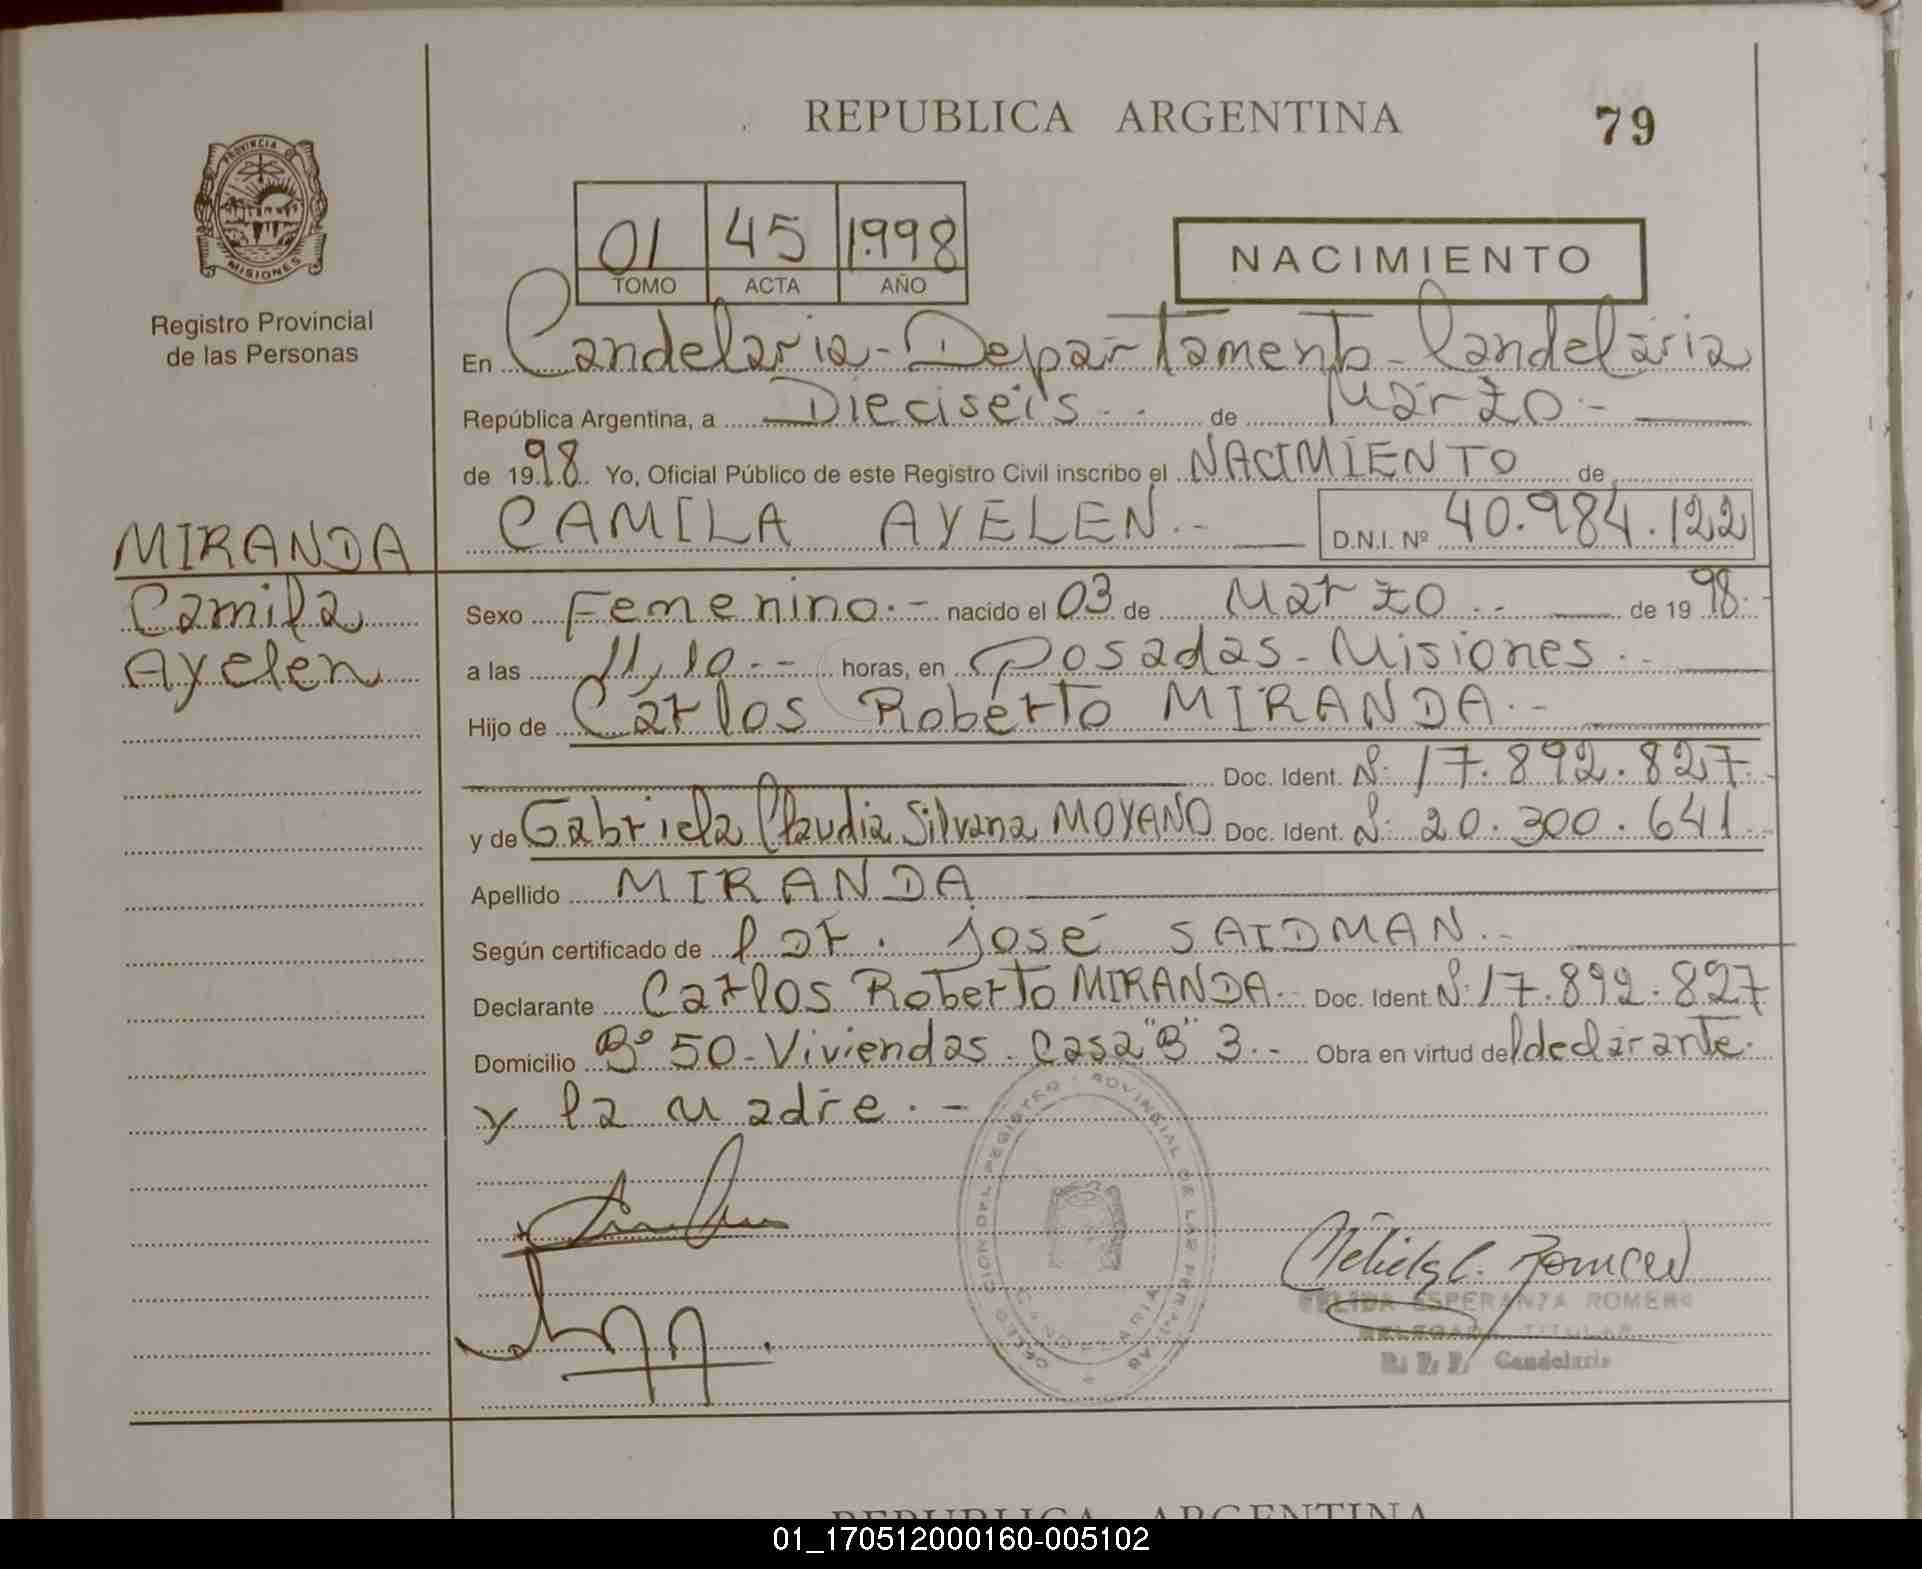 REPUBLICA ARGENTINA
79
PROVINCIA DE
MISIONES
Registro Provincial
de las Personas
01 45 1.998
TOMO ACTA AÑO
NACIMIENTO
En Candelaria - Departamento Candelaria
República Argentina, a Dieciseis de Marzo.-
de 1998. Yo, Oficial Público de este Registro Civil inscribo el NACIMIENTO de
CAMILA AYELEN.- D.N.I. Nº 40.984.122
MIRANDA
Camila
Ayelen
Sexo Femenino.- nacido el 03 de Marzo.- de 1998.-
a las 11,10.- horas, en Posadas - Misiones.-
Hijo de Carlos Roberto MIRANDA.-
Doc. Ident. Nº 17.892.827.-
y de Gabriela Claudia Silvana MOYANO Doc. Ident. Nº 20.300.641.-
Apellido MIRANDA
Según certificado de José SAIDMAN.-
Declarante Carlos Roberto MIRANDA.- Doc. Ident. Nº 17.892.827
Domicilio Bº 50 - Viviendas - Casa "B" 3.- Obra en virtud del declarante.
y la madre.-
NELIDA ESPERANZA ROMERO
DELEGADA TITULAR
R. P. P. Candelaria
REPUBLICA ARGENTINA
01_170512000160-005102